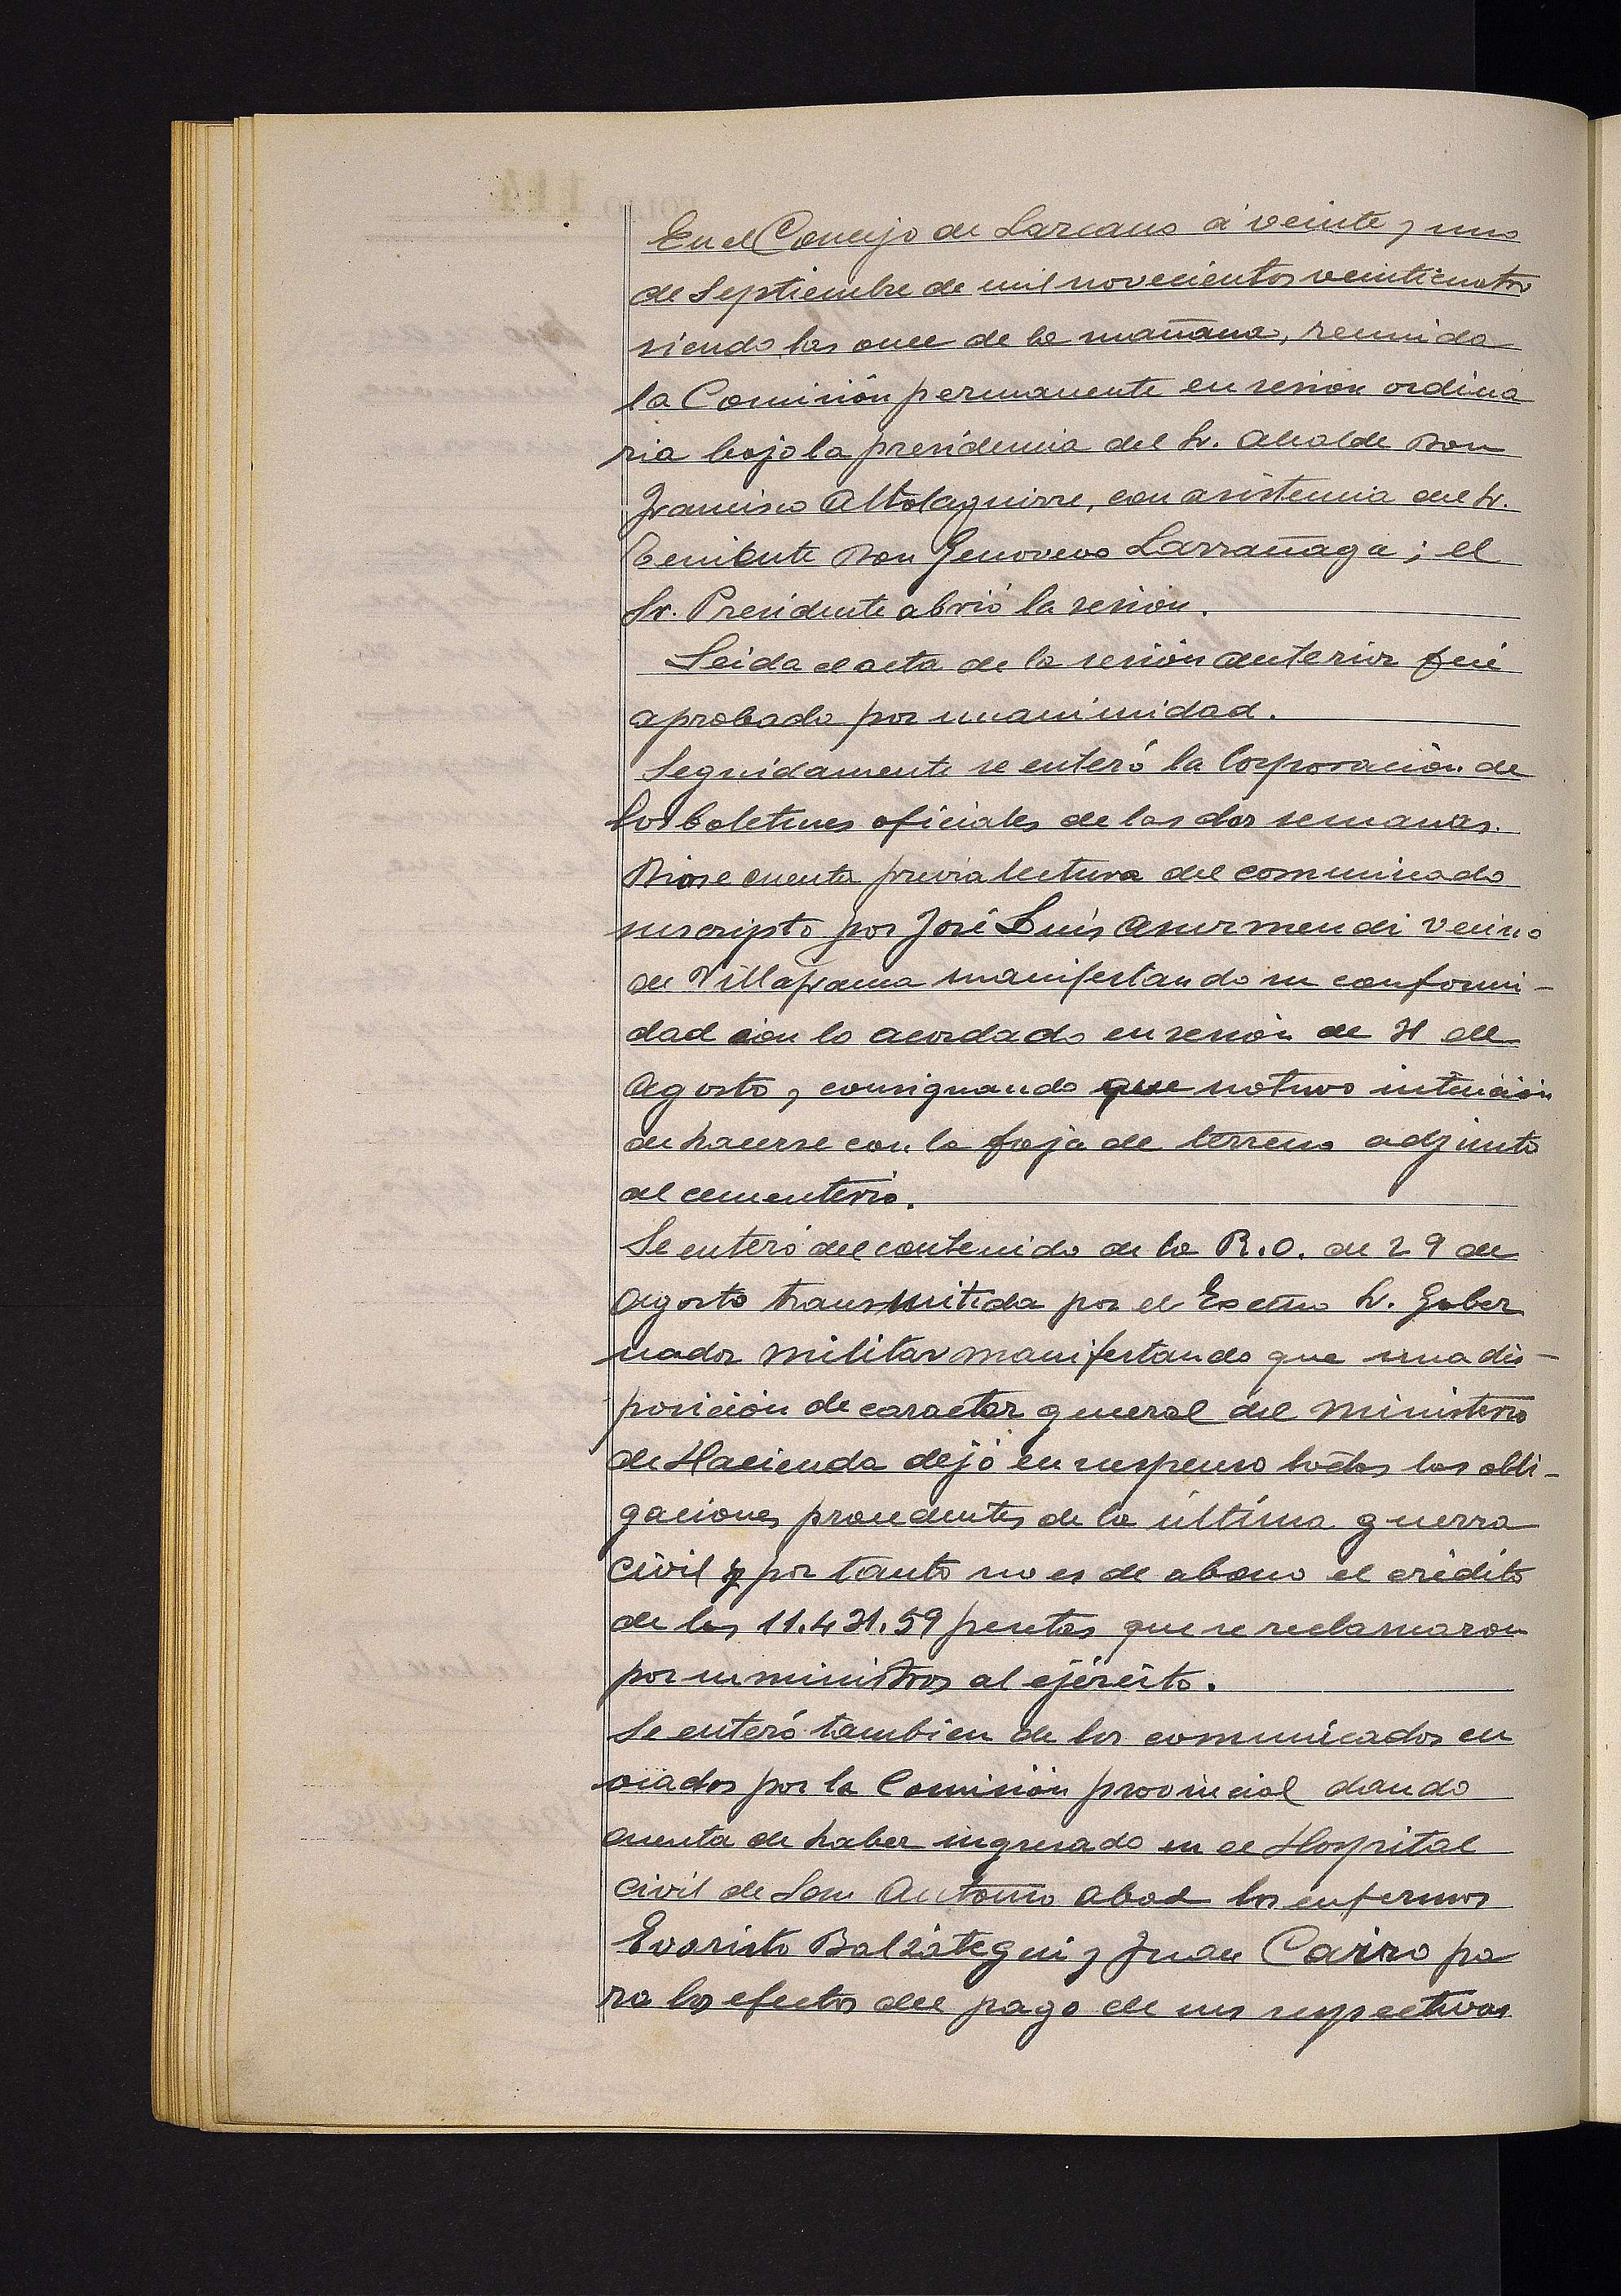 En el Concejo de Lazcano á veinte y uno
de Septiembre de mil novecientos veinticuatro
siendo las once de la mañana, reunida
la Comisión permanente en sesion ordina
ria bajo la presidencia del Sr. Alcalde Don
Francisco Altolaguirre, con asistencia del Sr.
Teniente Don Genoveva Larrañaga; el
Sr. Presidente abrió la sesion.
Leida el acta de la sesión anterior fué
aprobada por unanimidad.
Seguidamente se enteró la Corporación de
los boletines oficiales de las dos semanas.
Diose cuenta previa lectura del comunicado
suscripto por José Luis Asurmendi vecino
de Villafranca manifestando su conformi-
dad con lo acordado en sesión de 31 de
Agosto y consignando que no tuvo intención
de hacerse con la faja de terreno adjunto
al cementerio.
Se enteró del contenido de la R.O. de 29 de
Agosto transmitida por el Excmo Sr. Gober
nador militar manifestando que una dis-
posición de caracter general del ministerio
de Hacienda dejó en suspenso todas las obli-
gaciones procedentes de la última guerra
civil y por tanto no es de abono el crédito
de las 11.431.59 pesetas que se reclamaron
por suministros al ejército.
Se enteró tambien de los comunicados en
viados por la Comisión provincial dando
cuenta de haber ingresado en el Hospital
civil de San Antonio abad los enfermos
Evaristo Balzategui y Juan Cairo pa
ra los efectos del pago de sus respectivas